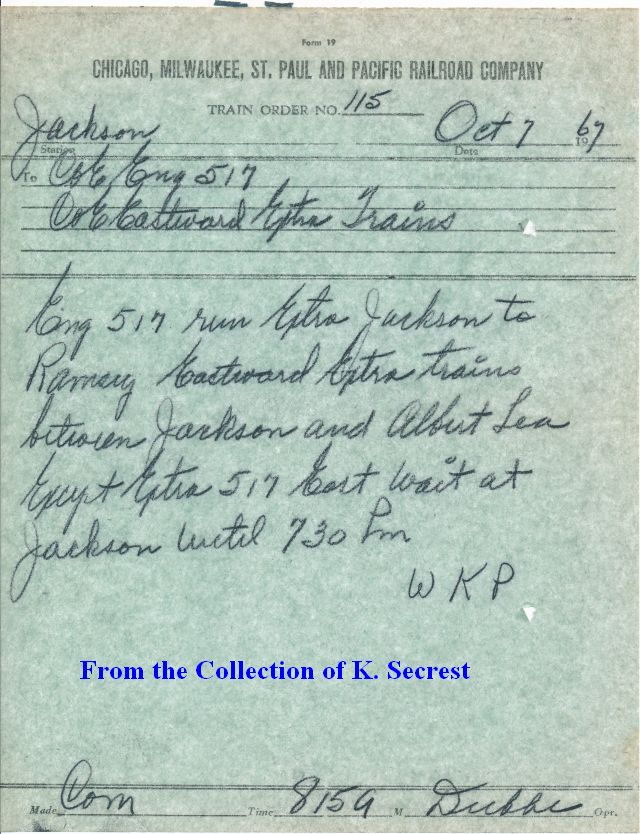 Form 19
CHICAGO, MILWAUKEE, ST. PAUL AND PACIFIC RAILROAD COMPANY
TRAIN ORDER NO. 115
Jackson Oct 7 1967
Station Date
To C&E Eng 517
C&E Eastward Extra Trains
Eng 517 run Extra Jackson to
Ramsey Eastward Extra trains
between Jackson and Albert Lea
Except Extra 517 East wait at
Jackson until 730 Pm
WKP
From the Collection of K. Secrest
Made Com Time 815A M Dubbe Opr.